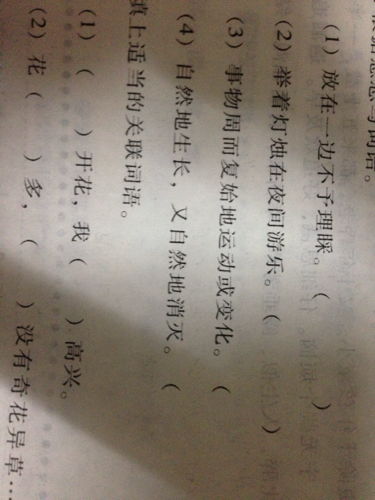 根据意思写词语。
(1) 放在一边不予理睬。( )
(2) 举着灯烛在夜间游乐。( )
(3) 事物周而复始地运动或变化。(
(4) 自然地生长，又自然地消灭。(
填上适当的关联词语。
(1) ( )开花，我( )高兴。
(2) 花( )多，( )没有奇花异草…